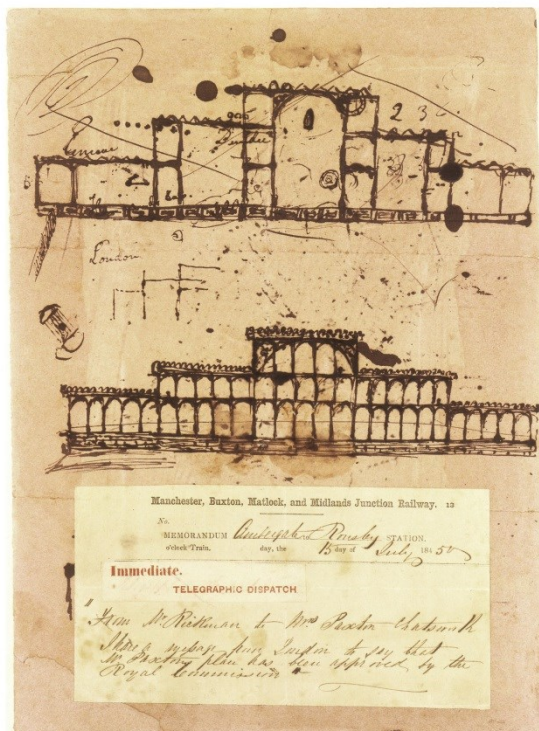 2 3
London
Manchester, Buxton, Matlock, and Midlands Junction Railway. 12
No.
MEMORANDUM Rowsley STATION.
o'clock Train, day, the 15 day of July 1850
Immediate.
TELEGRAPHIC DISPATCH
From Mr Rickman to Mrs Paxton Chatsworth
I have a message from London to say that
Mr Paxtons plan has been approved by the
Royal Commission